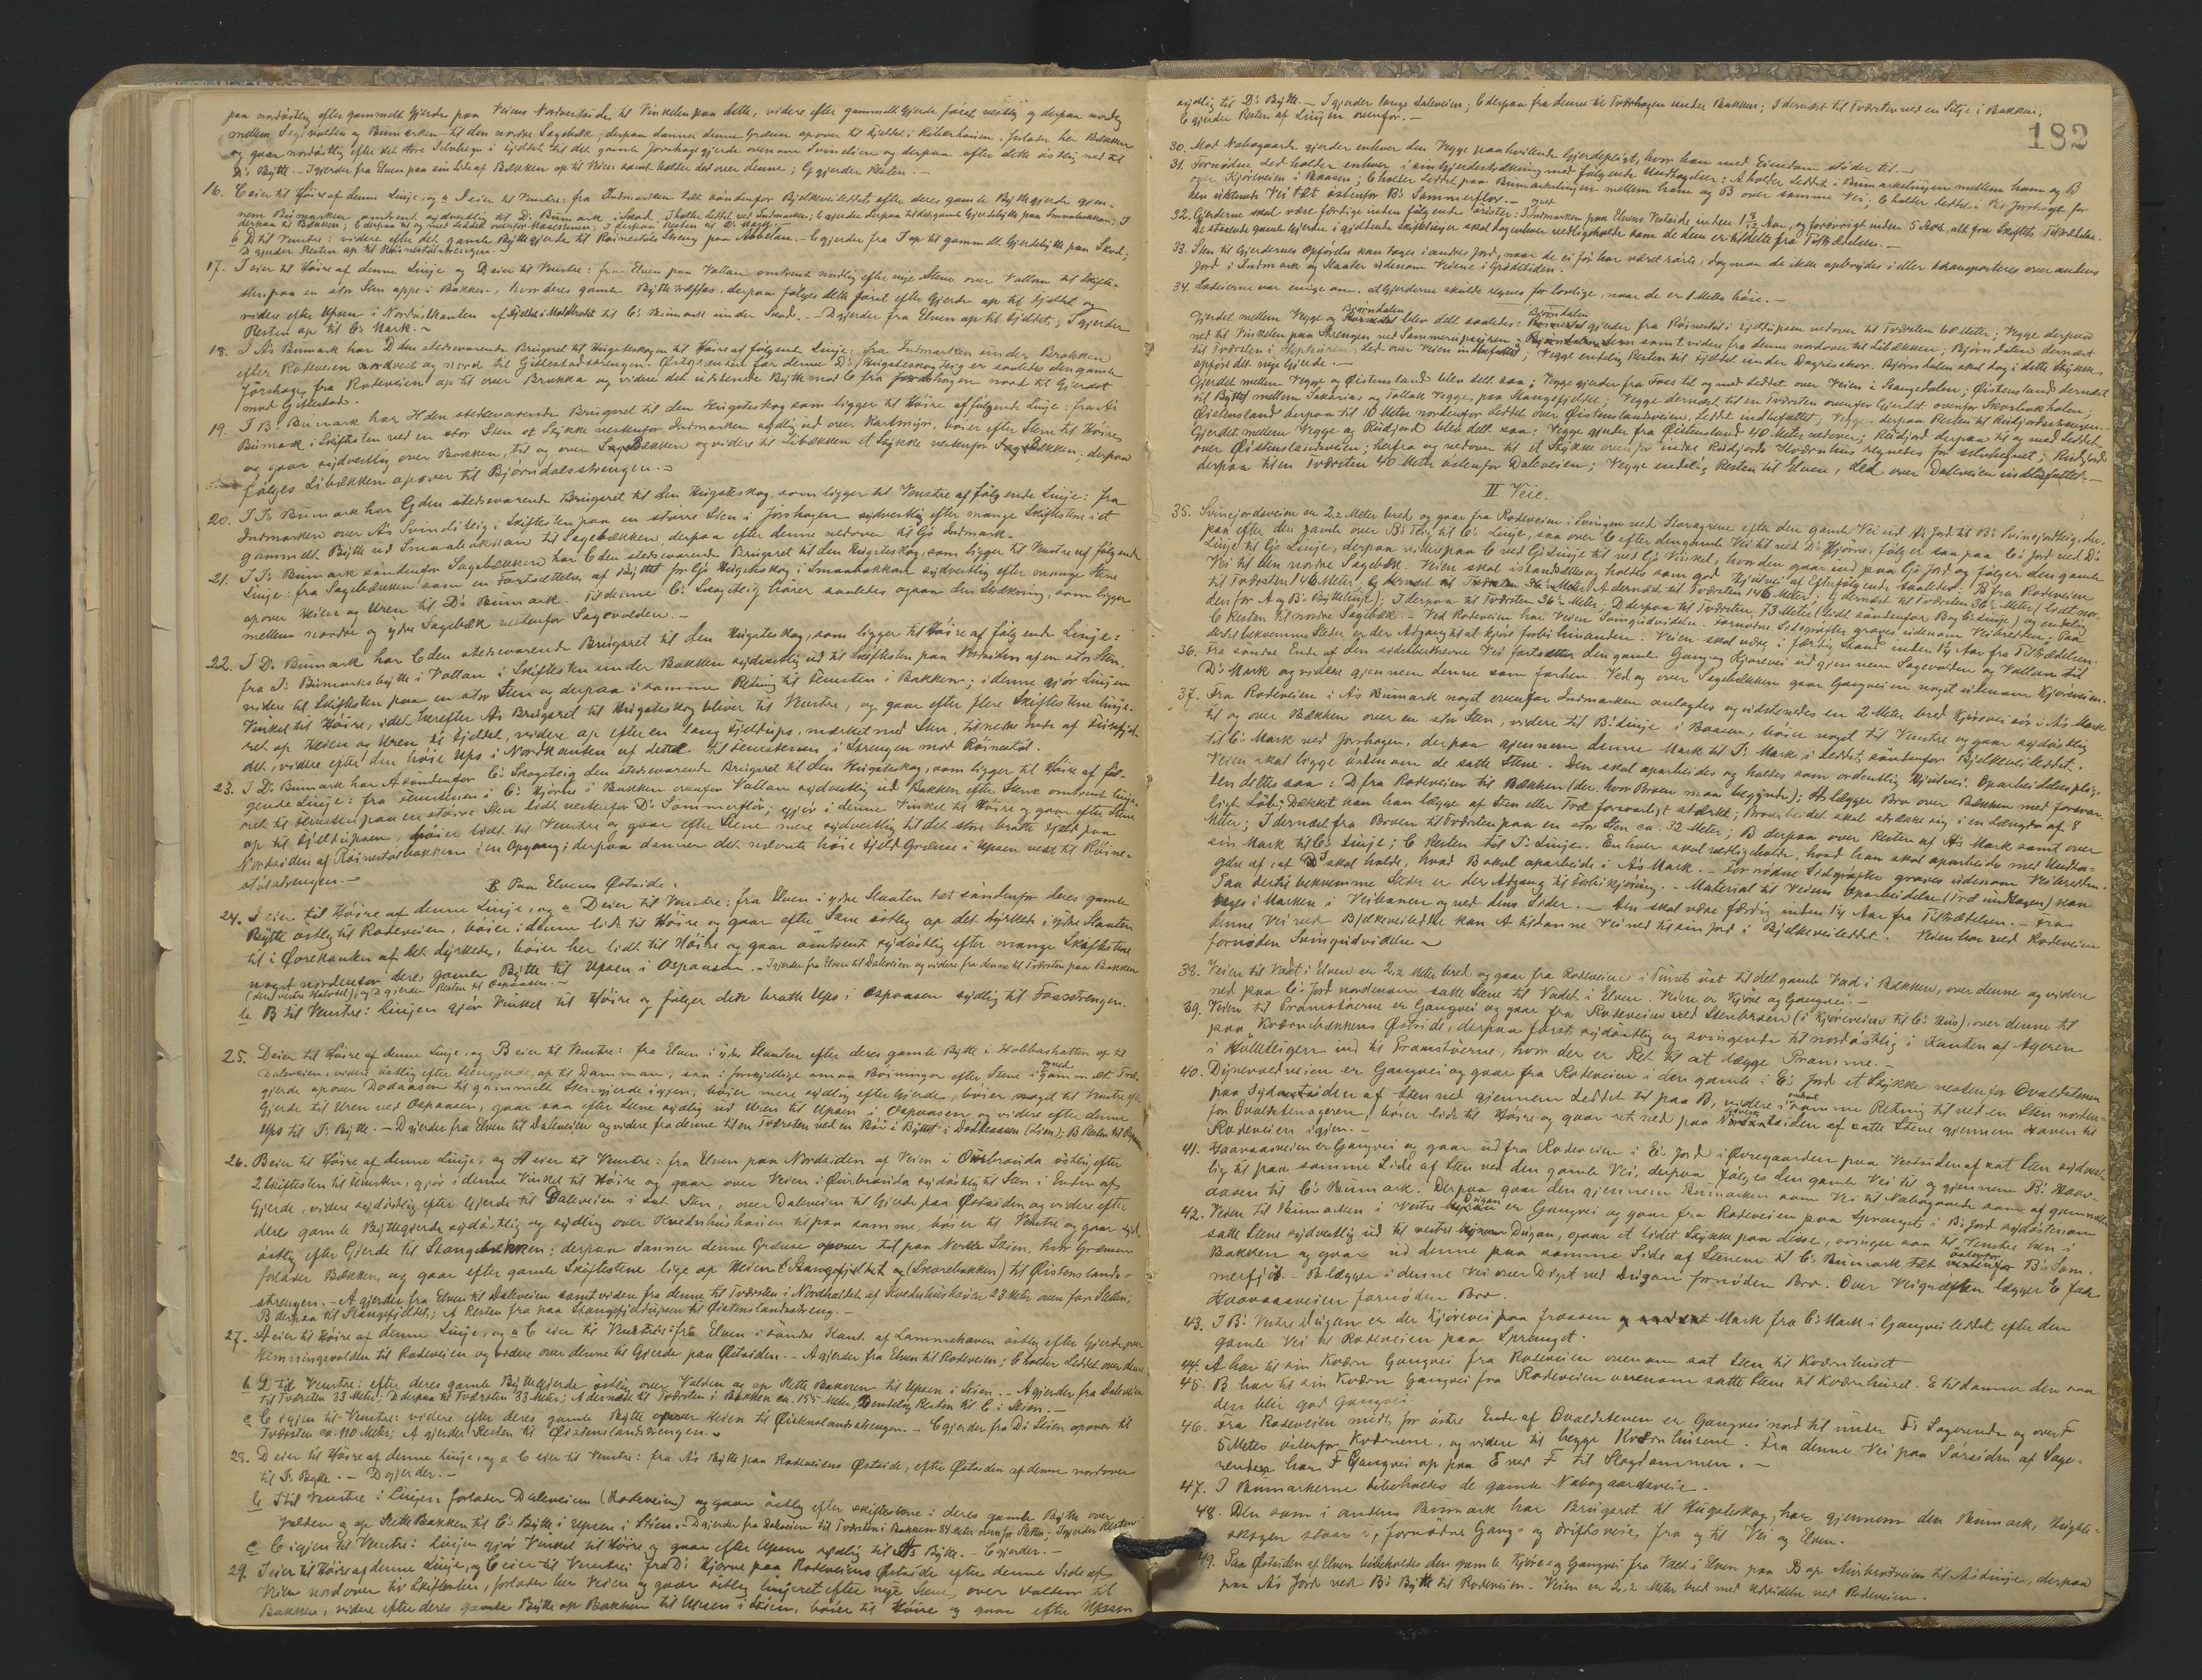 paa nordøstlig efter gammelt Gjerde paa Veiens Nordvestside til Vinkelen paa dette, videre efter gammelt Gjerde først vestlig og derpaa nordlig
mellem Sagevolden og Bumarken til den nordre Sagebæk; derpaa danner denne Grænse opover til Fjeldet i, forlader her Bækken
og gaar nordøstlig efter det store i Fjeldet til det gamle Jorshagegjerde ovenom Svineliem og derpaa efter dette østlig ned til
D's Bytte. - I gjerder fra Elven paa sin Side af Bækken op til Veien samt holder Led over denne; G gjerder Resten. -
16. C eier til Høire af denne Linje, og a I eier til Venstre: fra Indmarken tæt søndenfor Bjelkeveileddet efter deres gamle Byttegjerde gjen-
nem Bumarken omtrent sydvestlig til D's Bumark i Skad. I holder Leddet ved Indmarken; C gjerder derpaa til det gamle Gjerdebytte paa Smaabakkan; I
derpaa til Bækken; C derpaa til og med Leddet ovenfor; I derpaa Resten til D's Mark.
b D til Venstre: videre efter det gamle Byttegjerde til Røinestøls Streng paa Abbelan. - C gjerder fra I op til gammelt Gjerdebytte paa Skad;
D gjerder Resten op til Røinestølstrengen. -
17. I eier til Høire af denne Linje og D eier til Venstre: fra Elven paa Vollan omtrent nordlig efter nye Stene over Vollan til Skifte-
sten paa en stor Sten oppe i Bakken, hvor deres gamle Bytte træffes, derpaa følges dette først efter Gjerde op til Fjeldet og
videre efter Upsen i Nordøstkanten af Fjeldet i til C's Bumark under Skad. - D gjerder fra Elven op til Fjeldet; I gjerder
Resten op til C's Mark. -
18. I A's Bumark har D den stedsevarende Brugsret til Hugsteskogen til Høire af følgende Linje: fra Indmarken under Brokken
efter Rodeveien nordvest og nord til Gjillestadstrengen. Østgrænsen for denne D's Hugsteskogteig er saaledes den gamle
Jorshage fra Rodeveien op til over Brokka og videre det udstenede Bytte mod C fra Jorshagen nord til Gjerdet
mod Gjillestad.
19. I B's Bumark har H den stedsevarende Brugsret til den Hugsteskog som ligger til Høire af følgende Linje: fra A's
Bumark i Skiftesten ved en stor Sten et Stykke vestenfor Indmarken sydlig ud over Kartmyr, bøier efter Sten til Høire
og gaar sydvestlig over Bakken, til og over Sagebækken og videre til Libækken et Stykke vestenfor Sagebækken; derpaa
følges Libækken opover til Bjørndalsstrengen. -
20. I I's Bumark har G den stedsevarende Brugsret til den Hugsteskog, som ligger til Venstre af følgende Linje: fra
Indmarken over A's Svinelibteig i Skiftesten paa en større Sten i Jorshagen sydvestlig efter mange Skiftestene i et
gammelt Bytte ud Smaabakkan til Sagebækken, derpaa efter denne nedover til G's Indmark.
21. I I's Bumark søndenfor Sagebækken har C den stedsevarende Brugsret til den Hugsteskog, som ligger til Venstre af følgende
Linje: fra Sagebækken som en Fortsættelse af Byttet for G's Hugsteskog i Smaabakkan sydvestlig efter mange Stene
opover Heien og Uren til D's Bumark. Til denne C's Skogteig hører saaledes ogsaa den Strækning, som ligger
mellem nordre og ydre Sagebæk vestenfor Sagevolden. -
22. I D's Bumark har C den stedsevarende Brugsret til den Hugsteskog, som ligger til Høire af følgende Linje:
fra I's Bumarksbytte i Vollan i Skiftesten under Bakken sydvestlig ud til Skiftesten paa Nordsiden af en stor Sten,
videre til Skiftesten paa en stor Sten og derpaa i samme Retning til Stenesten i Bakken; i denne gjør Linjen
Vinkel til Høire, idet herefter A's Brugsret til Hugsteskog bliver til Venstre, og gaar efter flere Skiftestene linje-
ret op Heien og Uren til Fjeldet, videre op efter en lang Fjeldups, mærket med Sten, til nedre Ende af
det, videre efter den høie Ups i Nordkanten af dette til Stenestenen, i Strengen mod Røinestøl.
23. I D's Bumark har A søndenfor C's Skogteig den stedsevarende Brugsret til den Hugsteskog, som ligger til Høire af føl-
gende Linje: fra Stenestenen i C's Hjørne i Bakken ovenfor Vollan sydvestlig ud Bakken efter Stene omtrent linje-
ret til Stenesten paa en større Sten lidt vestenfor D's Sommerfløs; gjør i denne Vinkel til Høire og gaar efter Stene
op til Fjeldupsen, bøier lidt til Venstre og gaar efter Stene mere sydvestlig til det store bratte Fjeld paa
Nordsiden af Røinestølsbakken i en Opgang; derpaa danner det nævnte høie Fjeld Grænse i Upsen vest til Røine-
stølstrengen. -
B. Paa Elvens Østside:
24. I eier til Høire af denne Linje, og a D eier til Venstre: fra Elven i ydre Slaatten tæt søndenfor deres gamle
Bytte østlig til Rodeveien, bøier i denne lidt til Høire og gaar efter Stene østlig op det dyrkede i ydre Slaatten
til i Øvrekanten af det dyrkede, bøier her lidt til Høire og gaar omtrent sydøstlig efter mange Skiftestene
noget nordenfor deres gamle Bytte til Upsen i Ospaasen. - I gjerder fra Elven til Daleveien og videre fra denne til Tværsten paa Bakken
(den vestre Halvdel), og D gjerder Resten til Ospaasen. -
b B til Venstre: Linjen gjør Vinkel til Høire og følger dette bratte Ups i Ospaasen sydlig til Faasstrengen.
25. D eier til Høire af denne Linje, og B eier til Venstre: fra Elven i ydre Slaatten efter deres gamle Bytte i Hobbashatten op til
Daleveien, videre østlig efter Stengjerde, op til Dammen, saa i forskjellige smaa Bøininger efter Stene i gammelt Træ-
gjerde opover Dodaasen til gammelt Stengjerde igjen, bøier mere sydlig efter Gjerde, bøier noget til Venstre efter
Gjerde til Uren ved Ospaasen, gaar saa efter Stene sydlig ud Uren til Upsen i Ospaasen og videre efter denne
Ups til I's Bytte. - D gjerder fra Elven til Daleveien og videre fra denne til en Tværsten ved en Bøi i Byttet i Dodheaasen (Lien); B Resten til
26. B eier til Høire af denne Linje, og A eier til Venstre: fra Elven paa Nordsiden af Veien i Ourbrauda østlig efter
2 Skiftesten til Stenesten, gjør i denne Vinkel til Høire og gaar over Veien i Ourbrauda sydøstlig til Sten i Enden af
Gjerde, videre sydøstlig efter Gjerde til Daleveien i sat Sten, over Daleveien til Gjerde paa Østsiden og videre efter
deres gamle Byttegjerde sydøstlig og sydlig over Kværnhushaugen til paa samme, bøier til Venstre og gaar syd-
østlig efter Gjerde til Stangebækken; derpaa danner denne Grænse opover til paa Nordre Stien, hvor Grænsen
forlader Bækken og gaar efter gamle Skiftestene lige op Heien til Stangefjeldet og (Skorebakken) til Øistenslands-
strengen. - A gjerder fra Elven til Daleveien samt videre fra denne til Tværsten i Nordholdet af Kvednhushaugen 23 Meter ovenfor Sletten;
B derpaa til Stangefjeldet; A Resten fra paa Stangefjeldupsen til Øistenslandsstreng. -
27. A eier til Høire af denne Linje, og a C eier til Venstre: fra Elven i søndre Kant af Lammehaven østlig efter Gjerde, over
Hemmingsvolden til Rodeveien og videre over denne til Gjerde paa Østsiden. - A gjerder fra Elven til Rodeveien; C holder Leddet over denne
b D til Venstre: efter deres gamle Byttegjerde østlig over Volden og op Slette Bakken til Upsen i Stien. - A gjerder fra Daleveien
til Tværsten 33 Meter; D derpaa til Tværsten 33 Meter; A dernæst til Tværsten i Bakken ca. 155 Meter, D endelig Resten til C i Stien. -
c C igjen til Venstre: videre efter deres gamle Bytte opover Heien til Øistenslandsstrengen. - C gjerder fra D's Stien opover til
Tværsten ca. 110 Meter; A gjerder Resten til Øistenslandsstrengen. -
28. D eier til Høire af denne Linje, og a C eier til Venstre: fra A's Bytte paa Rodeveiens Østside, efter Østsiden af denne nordover
til I's Bytte. - D gjerder. -
b I til Venstre: Linjen forlader Daleveien (Rodeveien) og gaar østlig efter Skiftestene i deres gamle Bytte over
Volden og op Slette Bakken til C's Bytte i Upsen i Stien. - D gjerder fra Daleveien til Tværsten i Bakken 84 Meter ovenfor Sletten; I gjerder Resten
c C igjen til Venstre: Linjen gjør Vinkel til Høire og gaar efter Upsen sydlig til A's Bytte. - C gjerder. -
29. I eier til Høire af denne Linje, og C eier til Venstre: fra D's Hjørne paa Rodeveiens Østside efter denne Side af
Veien nordover til Skiftesten, forlader her Veien og gaar østlig linjeret efter nye Stene, over Volden til
Bakken, videre efter deres gamle Bytte op Bakken til Upsen i Stien, bøier til Høire og gaar efter Upsen
182
sydlig til D's Bytte. - I gjerder langs Daleveien; C derpaa fra denne til Tværhagen under Bakken; I dernæst til Tværsten ved en Stie i Bakken;
C gjerder Resten af Linjen ovenfor. -
30. Mod Nabogaarde gjerder enhver den Vegge paahvilende Gjerdepligt, hvor han med Eiendom støder til. -
31. Fornødne Led holder enhver i sin Gjerdestrækning med følgende Undtagelser: A holder Leddet i Bumarkslinjen mellem ham og B
over Kjøreveien i Baasen; C holder Leddet paa Bumarkslinjen mellem ham og B over samme Vei; C holder Leddet i Vei Jorshage for
den udstenede Vei tæt østenfor B's Sommerfløs. -
32. Gjerderne skal være færdige inden følgende Frister: i Indmarken paa Elvens Vestside inden 1 8/12 Aar, og forøvrigt inden 5 Aar, alt fra Skiftets Tiltrædelse.
De staaende gamle Gjerder i gjældende Skiftelinjer skal dog enhver vedligeholde som de dem er tildelte fra Tiltrædelsen. -
33. Sten til Gjerdernes Opførelse kan tages i andres Jord, naar de ei før har været rørte, dog maa de ikke opbrydes i eller transporteres over andens
Jord i Indmark og Slaatter udenom Veiene i Grødetiden.
34. Lodeierne var enige om, at Gjerderne skulde regnes for lovlige, naar de er 1 Meter høie. -
Gjerdet mellem Vegge og Bjørndalen blev delt saaledes: Bjørndalen gjerder fra Røinestøl i Fjeldupsen nedover til Tværsten 60 Meter; Vegge derpaa
ned til Vinkelen paa Strengen ved samt videre fra denne nordover til Libækken; Bjørndalen dernæst
til Tværsten i, Led over Veien indbefattet; Vegge endelig Resten til Fjeldet under Dagreskor. Bjørndalen skal dog i dette Stykke
opføre det nye Gjerde. -
Gjerdet mellem Vegge og Øistensland blev delt saa: Vegge gjerder fra Faas til og med Leddet over Veien i Stangedalen; Øistensland dernæst
til Byttet mellem Sakarias og Tollak Vegge, paa Stangefjeldet; Vegge dernæst til en Tværsten ovenfor Gjerdet ovenfor Skorbakholen;
Øistensland derpaa til 10 Meter nordenfor Leddet over Øistenslandveien, Leddet indbefattet; Vegge derpaa Resten til Rudjordsstrengen. -
Gjerdet mellem Vegge og Rudjord blev delt saa: Vegge gjerder fra Øistensland 40 Meter nedover; Rudjord derpaa til og med Leddet
over Øistenslandveien; herfra og nedover til et Stykke ovenfor indre Rudjords Kværnhus regnedes for selvhegnet; Rudjord
derpaa til en Tværsten 40 Meter østenfor Daleveien; Vegge endelig Resten til Elven, Led over Daleveien indbefattet. -
II Veie.
35. Svinefjordsveien er 2,2 Meter bred og gaar fra Rodeveien i Svingen ved Storagrene efter den gamle Vei ud A's Jord til B's Svinefjordteig, der-
paa efter den gamle over B's Teig til C's Linje, saa over C efter den gamle Vei til ned D's Hjørne, følger saa paa C's Jord ved D's
Linje til G's Linje, derpaa videre paa C ved G's Linje til ved G's Vinkel, hvor den gaar ind paa G's Jord og følger den gamle
Vei til den nordre Sagebæk. Veien skal istandsættes og holdes som god Hjulvei af Efterfølgende saaledes: B fra Rodeveien
til Tværsten 146 Meter; A dernæst til Tværsten 146 Meter; G dernæst til Tværsten 36½ Meter (lidt nor-
denfor A og B's Byttelinje); I derpaa til Tværsten 36½ Meter; D derpaa til Tværsten, 73 Meter (lidt søndenfor B og C's Linje) og endelig
C Resten til nordre Sagebæk. - Ved Rodeveien har Veien Svingudvidelse. Fornødne Sidegrøfter graves udenom Veibredden; Paa
dertil bekvemme Steder er der Adgang til at kjøre forbi hinanden. Veien skal være i færdig Stand inden 1½ Aar fra Tiltrædelsen.
36. Fra søndre Ende af den sidenbeskrevne Vei fortsætter den gamle Gang og Kjørevei ud gjennem Sagevolden og Vollan til
D's Mark og videre gjennem denne som forhen. Ved og over Sagebækken gaar Gangveien noget udenom Kjøreveien.
37. Fra Rodeveien i A's Bumark noget ovenfor Indmarken anlægtes og udstenedes en 2 Meter bred Kjørevei sør i A's Mark
til og over Bækken over en stor Sten, videre til B's Linje i Baasen, bøier noget til Venstre og gaar sydøstlig
til C's Mark ved Jorshagen, derpaa gjennem denne Mark til I's Mark i Leddet, søndenfor Bjelkeveileddet.
Veien skal ligge østenom de satte Stene. Den skal oparbeides og holdes som ordentlig Hjulvei. Oparbeidelsesplig-
ten deltes saa: D fra Rodeveien til Bækken (der, hvor Broen maa begynde); A lægger Bro over Bækken med forsvar-
ligt Løb; Dækket kan han lægge af Sten eller Træ forsvarligt stærkt; Broarbeidet skal strække sig i en Længde af 8
Meter; I dernæst fra Broen til Tværsten paa en stor Sten ca. 32 Meter; B derpaa over Resten af A's Mark samt over
sin Mark til C's Linje; C Resten til I's Linje. Enhver skal vedligeholde, hvad han skal oparbeide med Undta-
gelse af, at D skal holde, hvad B skal oparbeide i A's Mark. - Fornødne Sidegrøfter graves udenom Veibredden.
Paa dertil bekvemme Steder er der Adgang til Forbikjøring. - Material til Veiens Oparbeidelse (Træ undtagen) kan
tages i Marken i Veibanen og ved dens Sider. - Den skal være færdig inden 1½ Aar fra Tiltrædelsen. - Fra
denne Vei ved Bjelkeveileddet kan A tildanne Vei ned til sin Jord i Bjelkeveileddet. Veien har ved Rodeveien
fornøden Svingudvidelse. -
38. Veien til Vadet i Elven er 2,2 Meter bred og gaar fra Rodeveien i Tunet øst til det gamle Vad i Bækken, over denne og videre
ned paa C's Jord nordenom satte Stene til Vadet i Elven. Veien er Kjøre og Gangvei. -
39. Veien til Pramstøerne er Gangvei og gaar fra Rodeveien ved Stenbroen (i Kjøreveien til C's Hus), over denne til
paa Kværnbækkens Østside, derpaa først sydøstlig og svingende til nordøstlig i Kanten af Ageren
i Hullteigen ind til Pramstøerne, hvor der er Ret til at lægge Pramme. -
40. Dynevoldveien er Gangvei og gaar fra Rodeveien i den gamle i E's Jord et Stykke vestenfor Ovaldstuen
paa Sydvestsiden af Sten ved gjennem Leddet til paa B, videre i omtrent samme Retning til ved en Sten norden-
for Ovaldstuageren, bøier lidt til Høire og gaar ret ned paa Nordvestsiden af satte Stene gjennem Haven til
Rodeveien igjen. -
41. Haavaasveien er Gangvei og gaar ud fra Rodeveien i E's Jord i Øvregaarden paa Vestsiden af sat Sten sydvest-
lig til paa samme Side af Sten ved den gamle Vei, derpaa følges den gamle Vei til og gjennem B's Haav-
aasen til C's Bumark. Derpaa gaar den gjennem Bumarken som Vei til Nabogaarde som af gammelt.
42. Veien til Bumarken i Vestre Dugan er Gangvei og gaar fra Rodeveien paa Spranget i B's Jord sydøstenom
satte Stene sydvestlig ud til vestre Dugan, gaar et lidet Stykke paa disse, svinger saa til Venstre hen i
Bakken og gaar ud denne paa samme Side af Stenene til C's Bumark tæt østenfor B's Som-
merfjøs. - B lægger i denne Vei over Diget ved Dugan fornøden Bro. Over Veigrøften lægger E for
Haavaasveien fornøden Bro.
43. I B's Vestre Dugan er der Kjørevei paa Frossen Mark fra C's Mark i Gangveileddet efter den
gamle Vei til Rodeveien paa Spranget.
44. A har til sin Kværn Gangvei fra Rodeveien ovenom sat Sten til Kværnhuset
45. B har til sin Kværn Gangvei fra Rodeveien ovenom satte Stene til Kværnhuset. E tildanner den saa
den blir god Gangvei.
46. Fra Rodeveien midt for østre Ende af Ovaldstuen er Gangvei nord til under F's Sagerende og over F
5 Meter østenfor Kværnene, og videre til begge Kværnhusene. Fra denne Vei paa Sørsiden af Sage-
renden har F Gangvei op paa E ved F til Slogdammen. -
47. I Bumarkerne bibeholdes de gamle Nabogaardsveie. -
48. Den som i andens Bumark har Brugsret til Hugsteskog, har gjennem den Bumark, Hugste-
skogen staar i, fornødne Gang- og Driftsveie fra og til Vei og Elven.
49. Paa Østsiden af Elven bibeholdes den gamle Kjøre- og Gangvei fra Vadet i Elven paa B op Aurbrødveien til A's Linje, derpaa
paa A's Jord ved B's Bytte til Rodeveien. Veien er 2,2 Meter bred med Udvidelse ved Rodeveien.